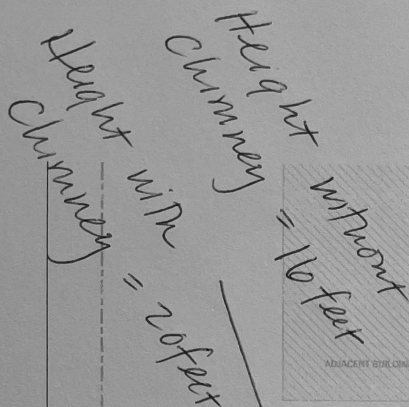 Height without
Chimney = 16 feet
Height with
Chimney = 20 feet
ADJACENT BUILDING